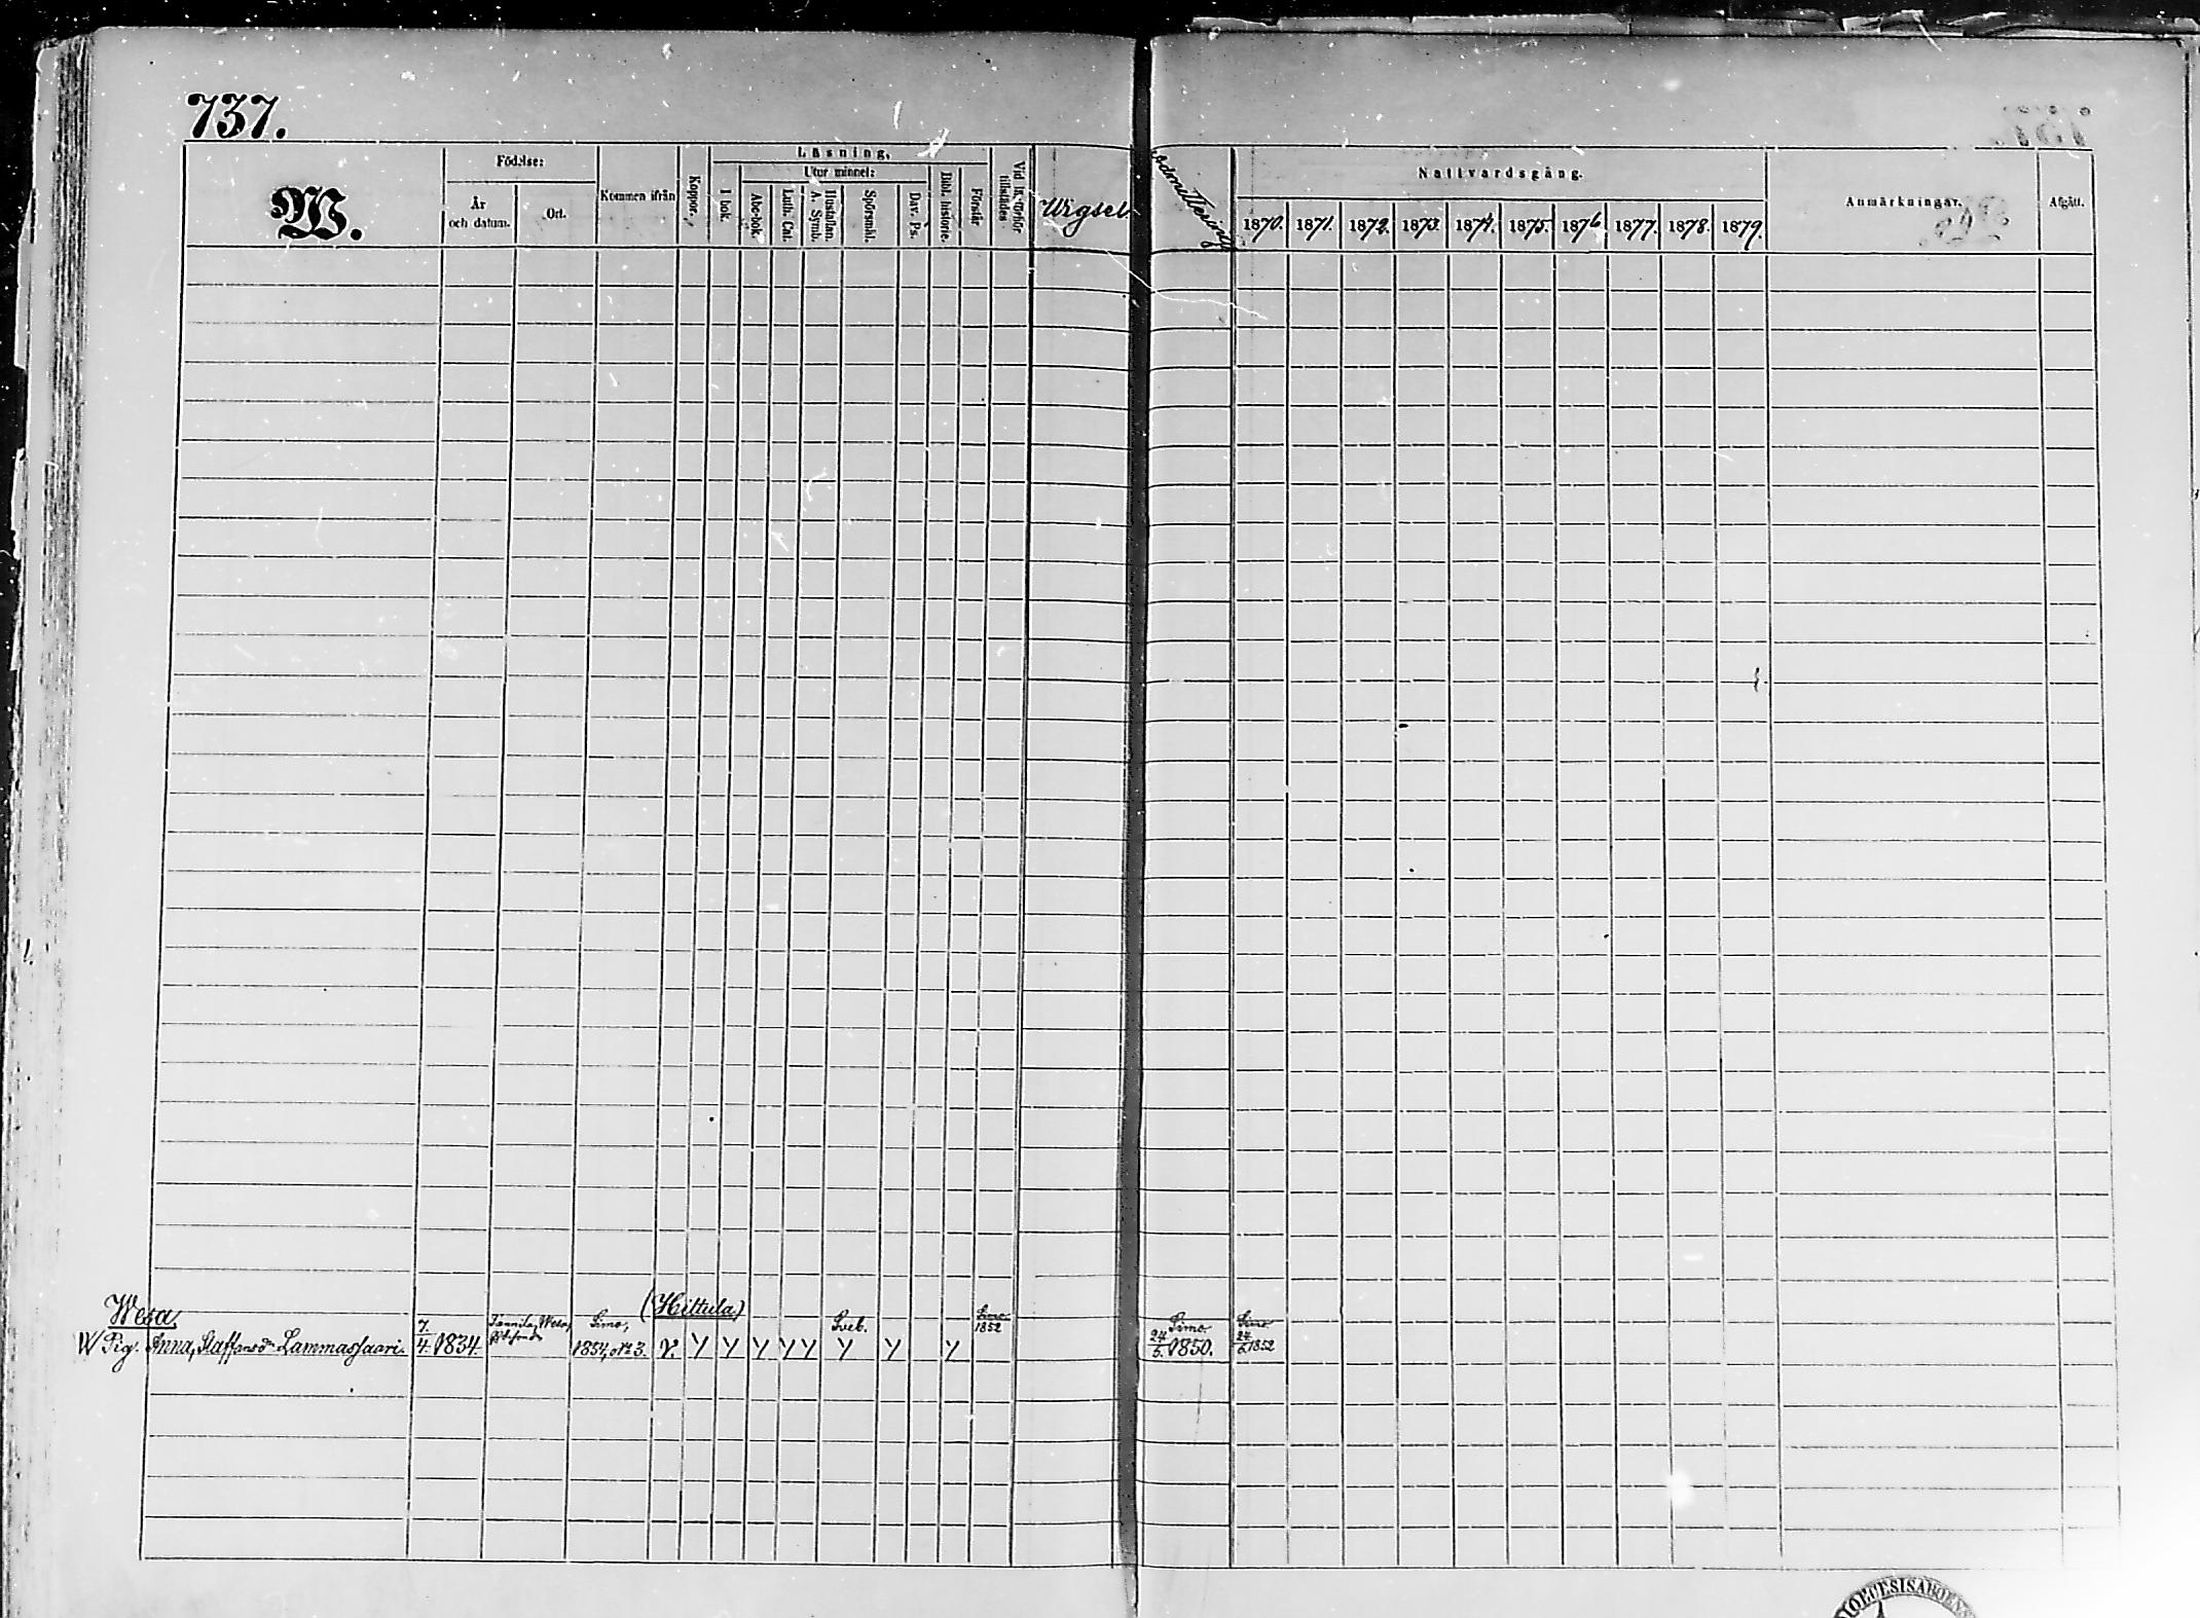 737.
W.
Födelse:
År och datum.
Ort.
Kommen ifrån
Koppor.
Läsning.
I bok.
Utur minnet:
Abc-bok.
Luth. Cat.
Hustaflan. A. Symb.
Spörsmål.
Dav. Ps.
Bibl. historie.
Förstår
Wigsel.
Admittering
Nattvardsgång.
1870. 1871. 1872. 1873. 1874. 1875. 1876. 1877. 1878. 1879.
Anmärkningar.
Afgått.
Wesa. (Hiltula)
W Pig. Anna, Staffansdr Lammassaari. 7/4 1834. Simo, 1854, No 3. v. Y Y Y Y Y Sveb. Y Y Y Simo 1852
Simo. 24/5. 1850. Simo 24/6. 1852